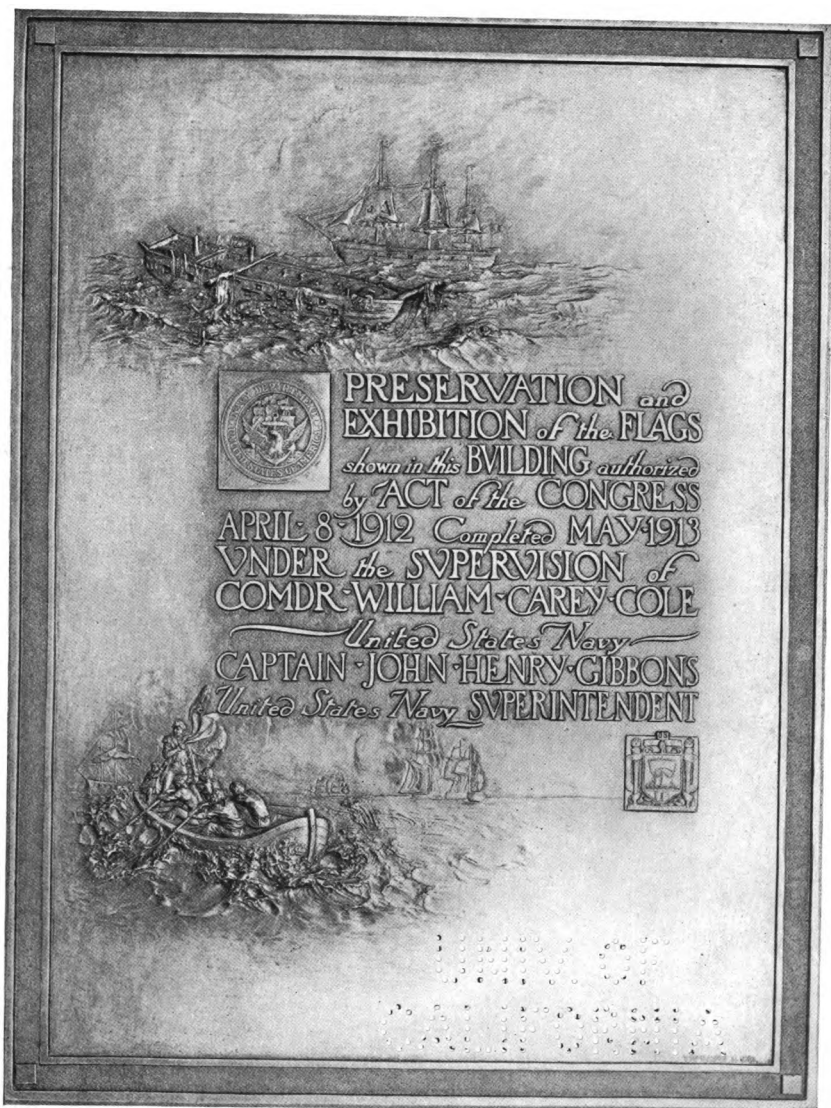 PRESERVATION and
EXHIBITION of the FLAGS
shown in this BVILDING authorized
by ACT of the CONGRESS
APRIL·8·1912 Completed MAY·1913
VNDER the SVPERVISION of
COMDR·WILLIAM·CAREY·COLE
United States Navy
CAPTAIN·JOHN·HENRY·GIBBONS
United States Navy SVPERINTENDENT
UNIV. OF
CALIFORNIA